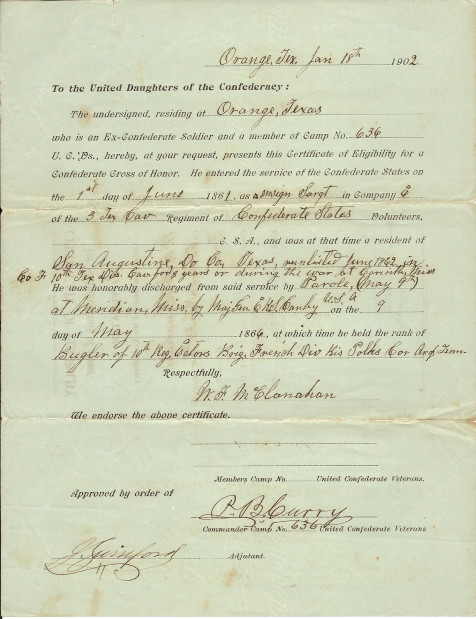 Orange, Tex. Jan 18th 1902
To the United Daughters of the Confederacy:
The undersigned, residing at Orange, Texas
who is an Ex-Confederate Soldier and a member of Camp No. 636
U. C. Vs., hereby, at your request, presents this Certificate of Eligibility for a
Confederate Cross of Honor. He entered the service of the Confederate States on
the 1st day of June 1861, as Sargt in Company E
of the 3 Tex Cav Regiment of Confederate States Volunteers,
C. S. A., and was at that time a resident of
San Augustine, Do Co, Texas, reinlisted June 1862, in
Co F 10th Tex Dis. Cav for 3 years or during the war at Corinth, Miss
He was honorably discharged from said service by Parole, (May 9th)
at Meridian, Miss, by Maj Gen E. R. S. Canby U.S.A on the 9
day of May 1865, at which time he held the rank of
Bugler of 10th Reg, Ectors Brig, French Div Polks Cor Army Tenn.
Respectfully,
W. F. McClanahan
We endorse the above certificate.
Members Camp No. United Confederate Veterans.
Approved by order of
P. B. Curry
Commander Camp No. 636 United Confederate Veterans
Adjutant.